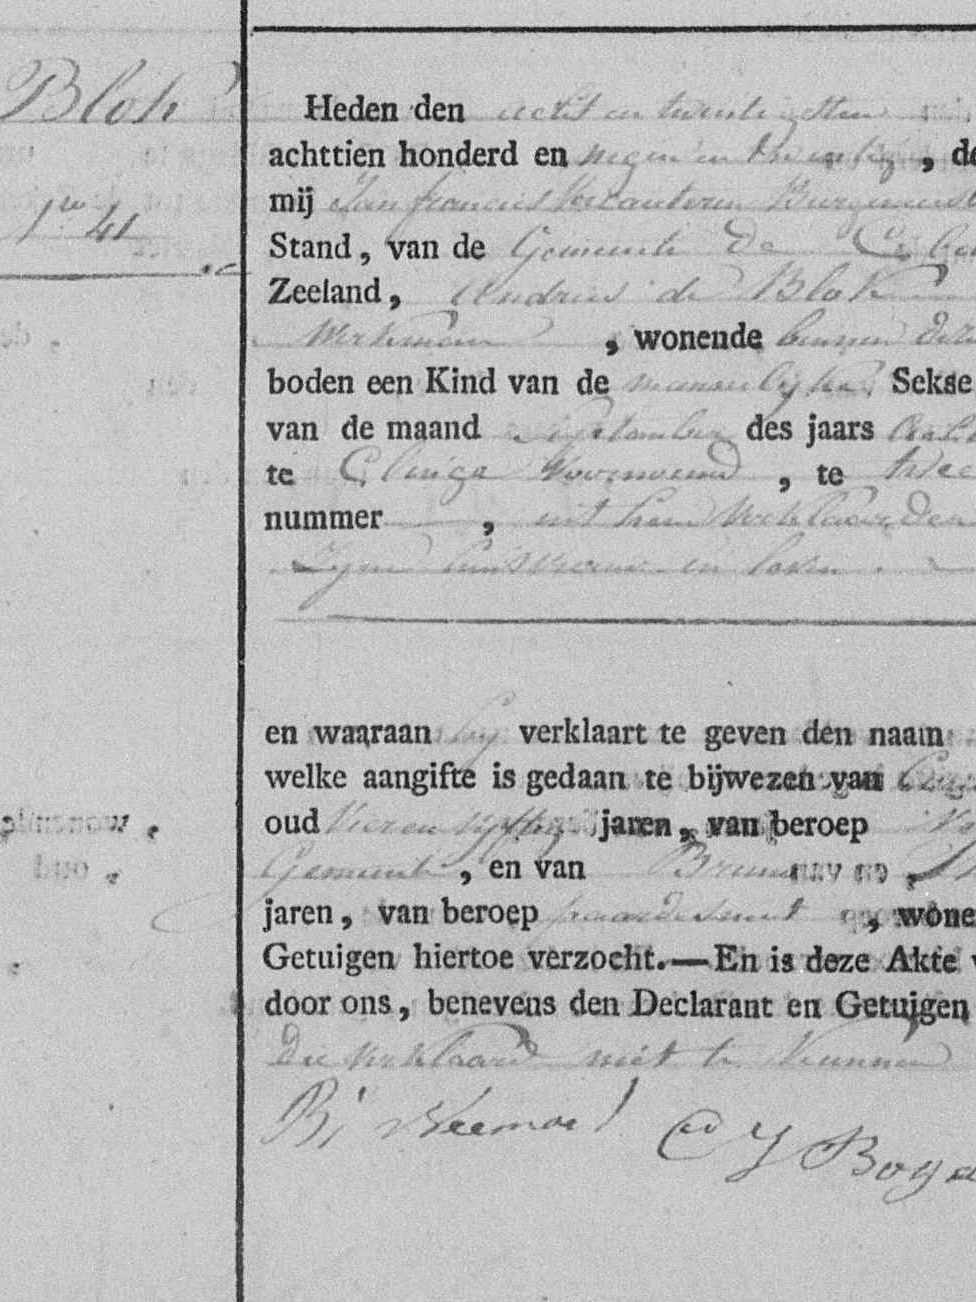 Blok
N.ro 41
Heden den acht en twintigsten
achttien honderd en negen en dertig, de
mij Jan francies Vercauteren Burgemeest
Stand, van de Gemeente De C
Zeeland, Andries de Blok
Werkman, wonende binnen deze
boden een Kind van de mannelijke Sekse
van de maand September des jaars acht
te Clinge voornoemd, te twee
nummer , uit hem verklaarder
Zijne huisvrouw en
en waaraan hij verklaart te geven den naam
welke aangifte is gedaan te bijwezen van
oud Vier en vijftig jaren, van beroep
Gemeente, en van Bruno
jaren, van beroep, wone
Getuigen hiertoe verzocht.—En is deze Akte v
door ons, benevens den Declarant en Getuigen
die verklaard niet te kunnen
B,